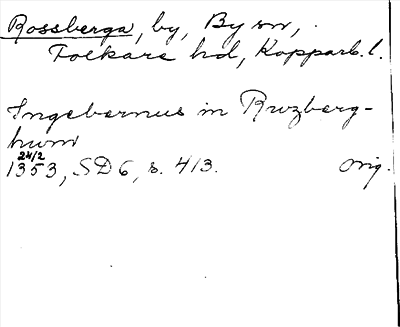 Rossberga, by, By sn,
Folkare hd, Kopparb. l.
Ingebernus in Ruzberg-
hum
24/2
1353, SD 6, s. 413. Orig.